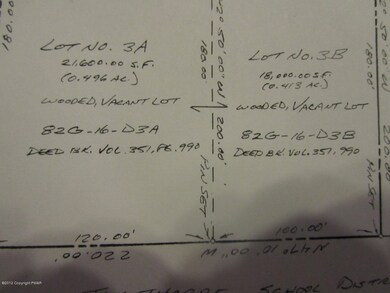 180.00
LOT NO. 3A
21,600.00 S.F.
(0.496 AC.)
WOODED, VACANT LOT
82G-16-D3A
DEED BK. VOL. 351, PG. 990
180.00
200.00'
PIN SET
LOT NO. 3B
18,000.00 S.F.
(0.413 AC.)
WOODED, VACANT LOT
82G-16-D3B
DEED BK. VOL. 351, 990
200.00
PIN SET
120.00'
100.00'
220.00'
N 47° 10' 00" W
SCHOOL